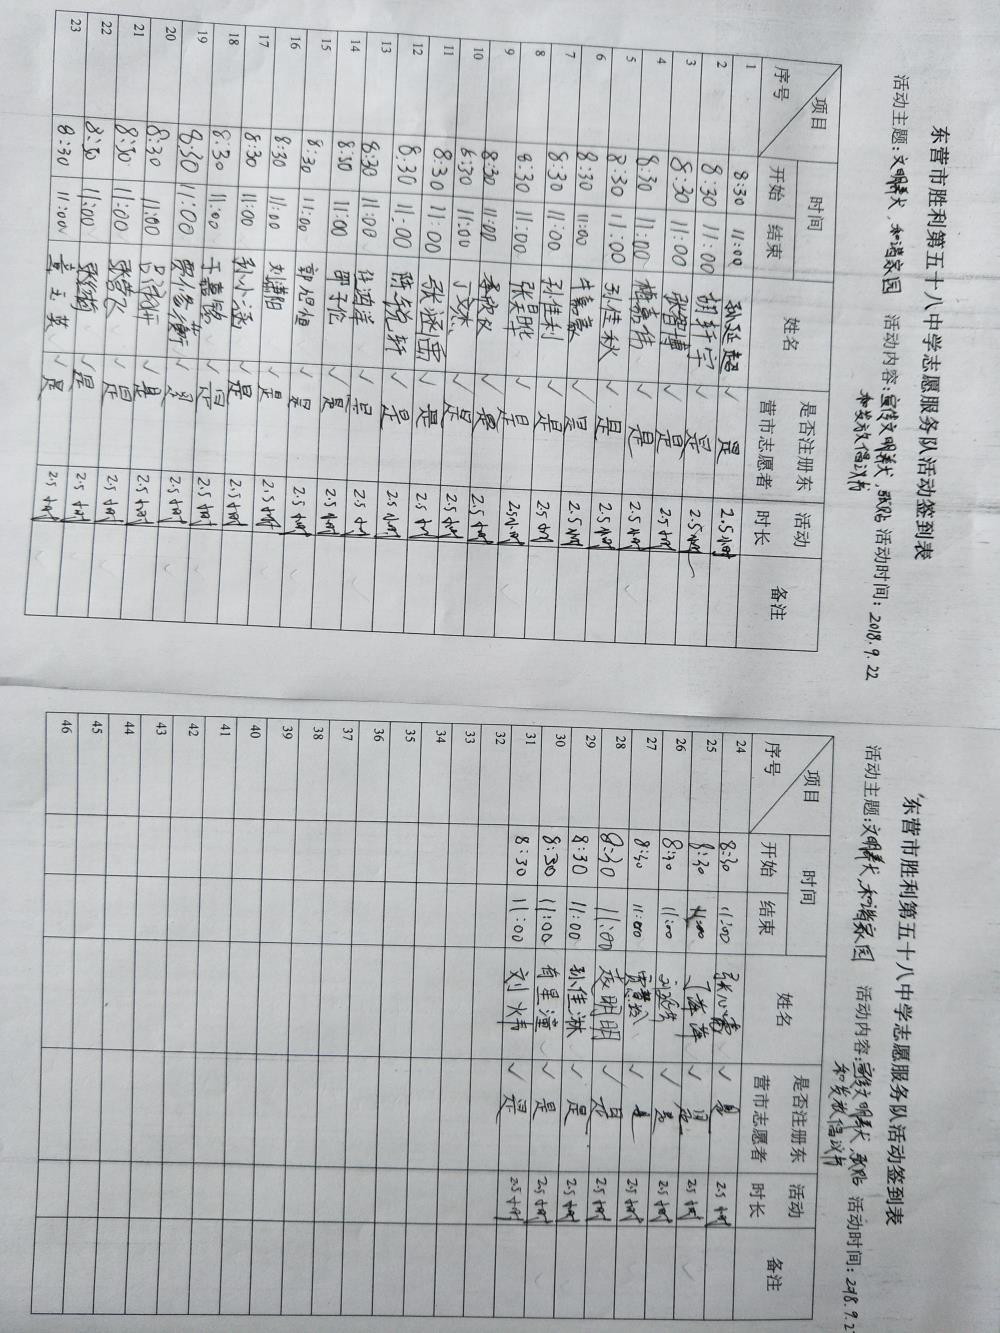 东营市胜利第五十八中学志愿服务队活动签到表
活动主题:文明养犬,和谐家园 活动内容:宣传文明养犬,张贴 活动时间:2018.9.22
和发放倡议书
项目 时间 姓名 是否注册东 活动 备注
序号 开始 结束 营市志愿者 时长
1 8:30 11:00 孙延超 ✓ 是 2.5小时
2 8:30 11:00 胡轩宇 ✓ 是 2.5小时
3 8:30 11:00 张智博 ✓ 是 2.5小时
4 8:30 11:00 ✓ 是 2.5小时
5 8:30 11:00 孙佳秋 ✓ 是 2.5小时
6 8:30 11:00 牛嘉豪 ✓ 是 2.5小时
7 8:30 11:00 孔佳利 ✓ 是 2.5小时
8 8:30 11:00 张昊晔 ✓ 是 2.5小时
9 8:30 11:00 ✓ 是 2.5小时
10 8:30 11:00 ✓ 是 2.5小时
11 8:30 11:00 张涵雨 ✓ 是 2.5小时
12 8:30 11:00 陈锐轩 ✓ 是 2.5小时
13 8:30 11:00 ✓ 是 2.5小时
14 8:30 11:00 ✓ 是 2.5小时
15 8:30 11:00 郭旭恒 ✓ 是 2.5小时
16 8:30 11:00 刘潇阳 ✓ 是 2.5小时
17 8:30 11:00 孙小涵 ✓ 是 2.5小时
18 8:30 11:00 于嘉铭 ✓ 是 2.5小时
19 8:30 11:00 ✓ 是 2.5小时
20 8:30 11:00 ✓ 是 2.5小时
21 8:30 11:00 张营飞 ✓ 是 2.5小时
22 8:30 11:00 ✓ 是 2.5小时
23 8:30 11:00 ✓ 是 2.5小时
东营市胜利第五十八中学志愿服务队活动签到表
活动主题:文明养犬,和谐家园 活动内容:宣传文明养犬,张贴 活动时间:2018.9.2
和发放倡议书
项目 时间 姓名 是否注册东 活动 备注
序号 开始 结束 营市志愿者 时长
24 8:30 11:00 ✓ 是 2.5小时
25 8:30 11:00 ✓ 是 2.5小时
26 8:30 11:00 ✓ 是 2.5小时
27 8:30 11:00 ✓ 是 2.5小时
28 8:30 11:00 ✓ 是 2.5小时
29 8:30 11:00 孙佳淋 ✓ 是 2.5小时
30 8:30 11:00 ✓ 是 2.5小时
31 8:30 11:00 刘炜 ✓ 是 2.5小时
32
33
34
35
36
37
38
39
40
41
42
43
44
45
46